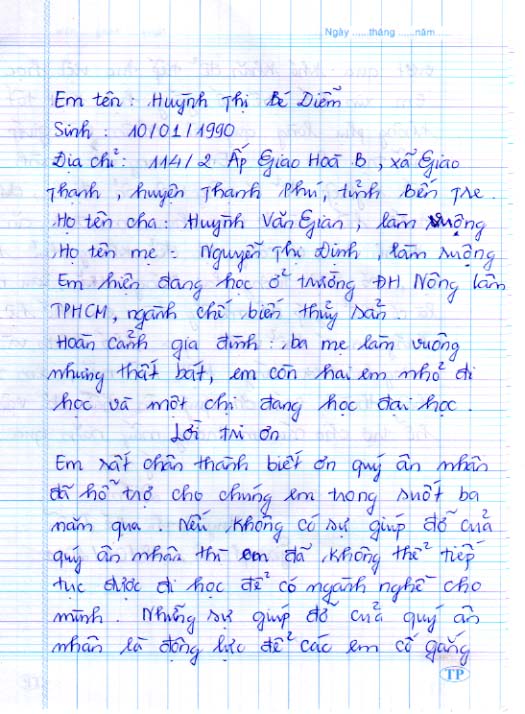 Ngày ......tháng ......năm ......
Em tên : Huỳnh Thị Bé Diễm
Sinh : 10/01/1990
Địa chỉ : 114/2 Ấp Giao Hoà B, xã Giao
Thạnh, huyện Thạnh Phú, tỉnh Bến Tre.
Họ tên cha : Huỳnh Văn Gian, làm ruộng
Họ tên mẹ : Nguyễn Thị Dinh, làm ruộng
Em hiện đang học ở trường ĐH Nông lâm
TPHCM, ngành chế biến thủy sản.
Hoàn cảnh gia đình : ba mẹ làm vuông
nhưng thất bát, em còn hai em nhỏ đi
học và một chị đang học đại học.
Lời tri ơn
Em rất chân thành biết ơn quý ân nhân
đã hỗ trợ cho chúng em trong suốt ba
năm qua. Nếu không có sự giúp đỡ của
quý ân nhân thì em đã không thể tiếp
tục được đi học để có ngành nghề cho
mình. Những sự giúp đỡ của quý ân
nhân là động lực để các em cố gắng
TP